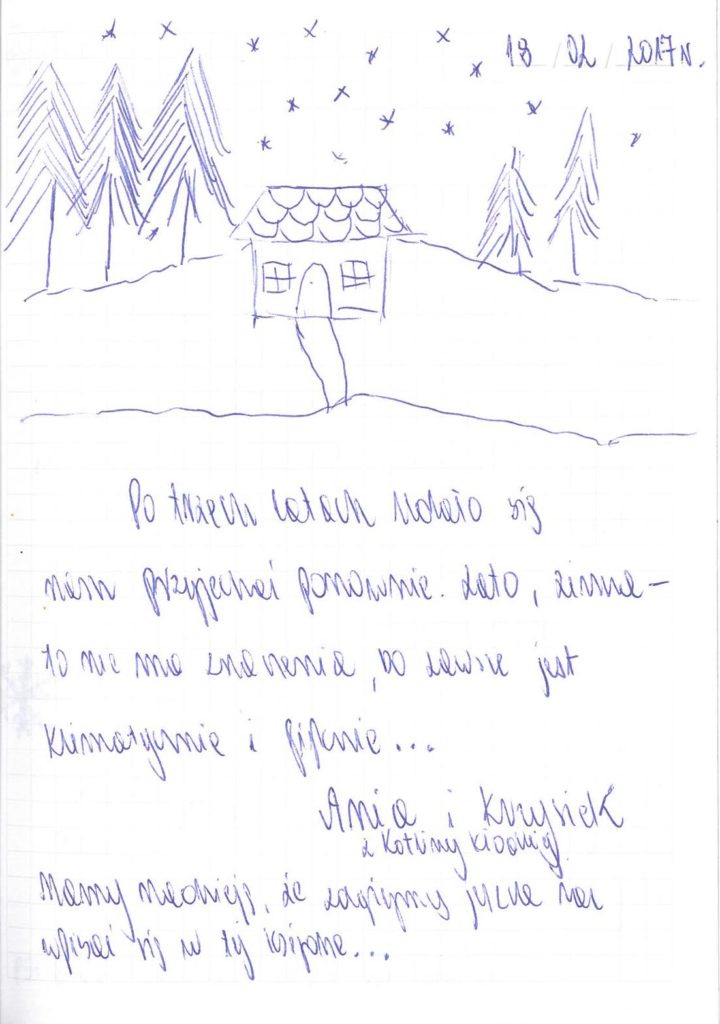 18 02 2017r.
Po trzech latach udało się
nam przyjechać ponownie. Lato, zima –
to nie ma znaczenia, bo zawsze jest
klimatycznie i pięknie...
Ania i Krzysiek
z Kotliny Kłodzkiej
Mamy nadzieję, że zdążymy jeszcze raz
wpisać się w tej księdze...